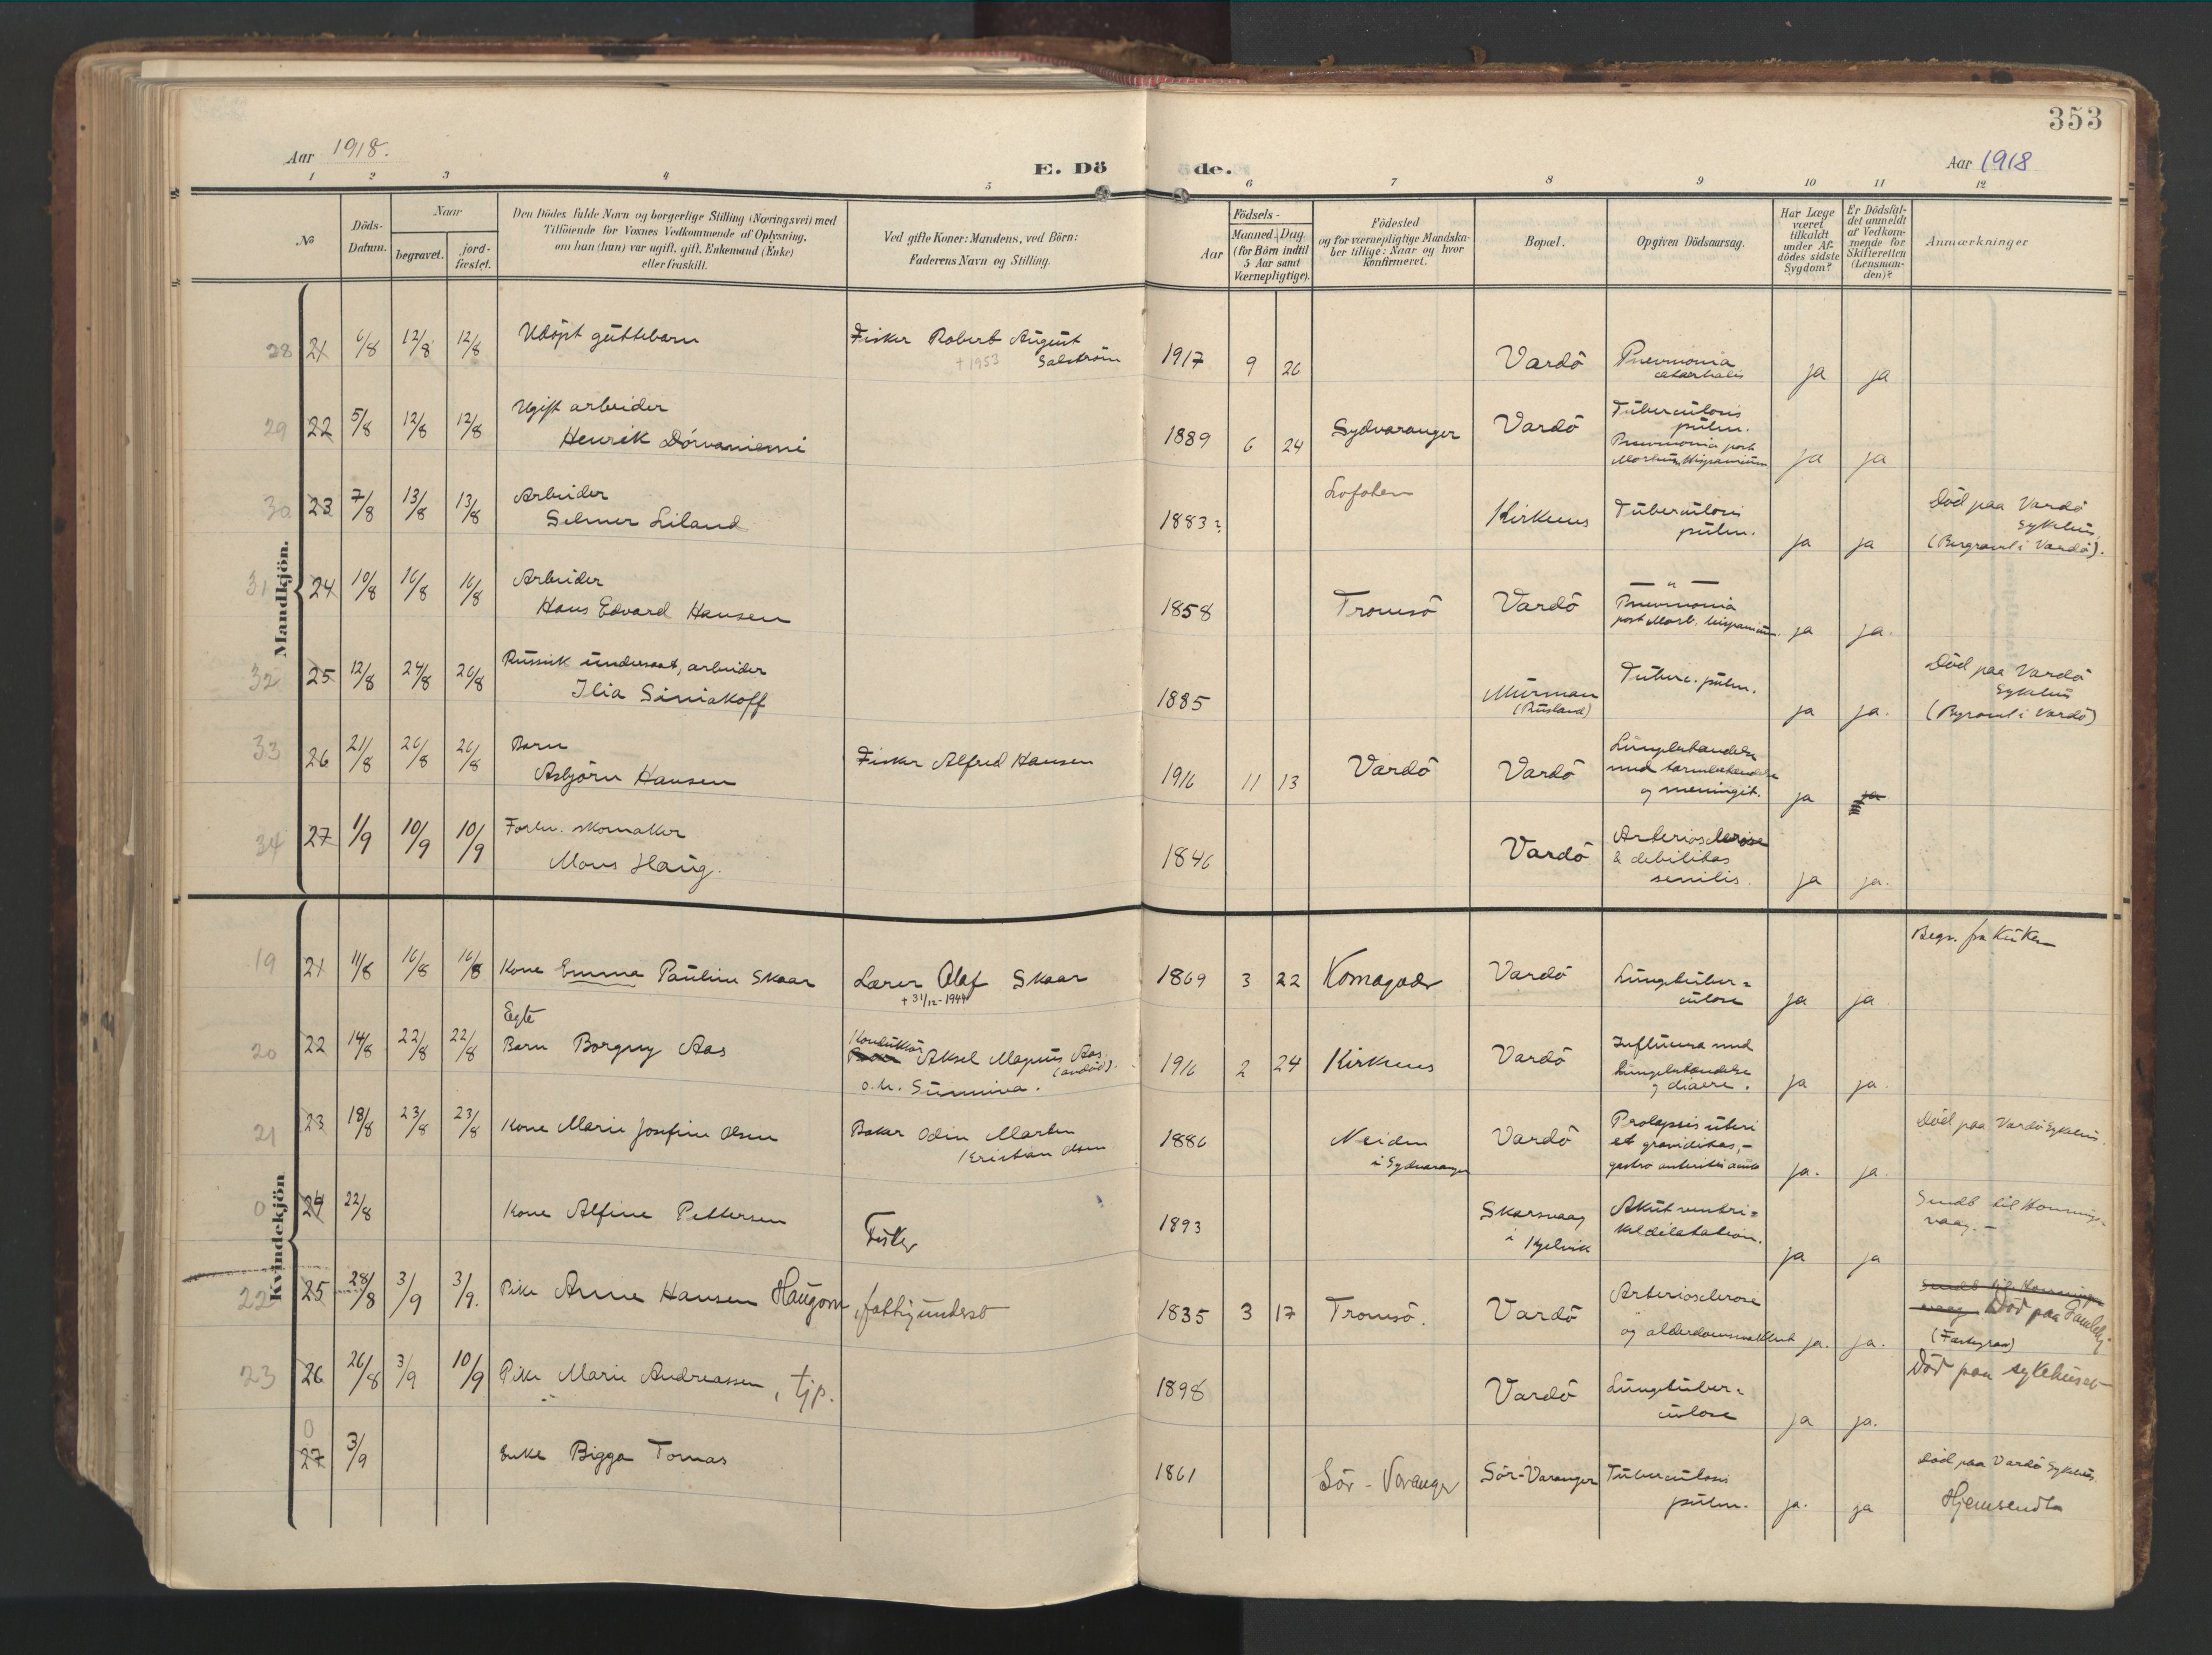 353
Aar 1918.
E. Döde.
Aar 1918
1 2 3 4 5 6 7 8 9 10 11 12
No
Döds-Datum.
Naar
begravet.
jord-fæstet.
Den Dödes fulde Navn og borgerlige Stilling (Næringsvei) med
Tilföiende for Voxnes Vedkommende af Oplysning,
om han (hun) var ugift, gift, Enkemand (Enke)
eller fraskilt.
Ved gifte Koner: Mandens, ved Börn:
Faderens Navn og Stilling.
Födsels-
Aar
Maaned. Dag
(for Börn indtil
5 Aar samt
Værnepligtige).
Födested
og for værnepligtige Mandska-
ber tillige: Naar og hvor
konfirmeret.
Bopæl.
Opgiven Dödsaarsag.
Har Læge
været
tilkaldt
under Af-
dödes sidste
Sygdom?
Er Dödsfal-
det anmeldt
af Vedkom-
mende for
Skifteretten
(Lensman-
den)?
Anmærkninger
Mandkjön.
28 21 6/8 12/8 12/8 Udöpt guttebarn Fisker Robert August
+ 1953 Salström
1917 9 26 Vardö Pneumonia
catarrhalis ja ja
29 22 5/8 12/8 12/8 Ugift arbeider
Henrik Dörvaniemi
1889 6 24 Sydvaranger Vardö Tuberculosis
pulm.
Pneumonia post
Morbum hispanicum ja ja
30 23 7/8 13/8 13/8 Arbeider
Selmer Liland
1883? Lofoten Kirkenes Tuberculosis
pulm. ja ja
Död paa Vardö
Sykehus.
(Begravet i Vardö).
31 24 10/8 16/8 16/8 Arbeider
Hans Edvard Hansen
1858 Tromsö Vardö — " —
Pneumonia
post Morb. hispanicum. ja ja.
32 25 12/8 24/8 26/8 Russisk undersaat, arbeider
Ilia Siniakoff
1885 Murman
(Rusland) Tuberc. pulm. ja ja.
Död paa Vardö
Sykehus
(Begravet i Vardö)
33 26 21/8 26/8 26/8 Barn
Asbjörn Hansen Fisker Alfred Hansen
1916 11 13 Vardö Vardö Lungebetændelse
med tarmbetændelse
og meningit. ja ja
34 27 1/9 10/9 10/9 Forhv. skomaker
Mons Haug.
1846 Vardö Arteriosclerose
& debilitas
senilis. ja ja.
Kvindekjön
19 21 11/8 16/8 16/8 Kone Emma Pauline Skaar Lærer Olaf Skaar
+ 31/12-1944
1869 3 22 Komagvær Vardö Lungetuber=
culose ja ja
Begr. fra Kirken
20 22 14/8 22/8 22/8 Egte
Barn Borgny Aas Konduktör
Aksel Magnus Aas.
o. h. Sunniva.
1916 2 24 Kirkenes Vardö Influensa med
lungebetændelse
og diaere. ja ja.
21 23 18/8 23/8 23/8 Kone Marie Josefine Olsen Baker Odin Martin
Kristian Olsen
1886 Neiden
i Sydvaranger Vardö Prolapsis uteri
et graviditas,-
gastro enteritis acuta ja. ja.
Död paa Vardö Sykehus.
0 24 22/8 Kone Alfine Pettersen Fisker
1893 Skarsvaag
i Kjelvik Akut ventri=
keldilatation. ja ja
Sendt til Honnings-
vaag. -
22 25 28/8 3/9 3/9. Pike Anne Hansen Haugom, fattigunderst
1835 3 17 Tromsö. Vardö Arteriosclerose
og alderdomssvakhet ja. ja.
Sendt til Honnings-
vaag Död paa Gamlehj.
23 26 26/8 3/9 10/9 Pike Marie Andreassen, tjp.
1898 Vardö Lungetuber=
culose ja ja.
Död paa sykehuset
0 27 3/9 Enke Bigga Tomas
1861 Sör-Varanger Sör-Varanger Tuberculosis
pulm. ja. ja
Död paa Vardö Sykehus.
Hjemsendt